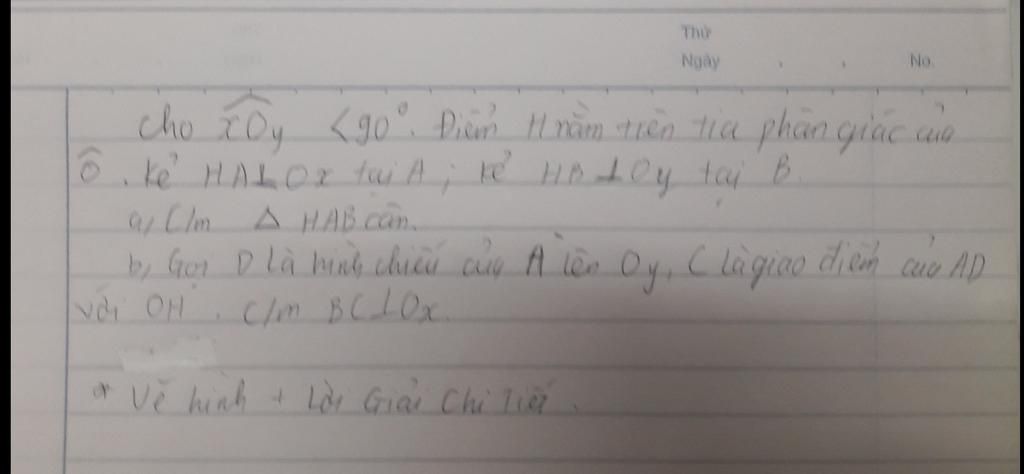 Thứ
Ngày . . No.
Cho xOy < 90°. Điểm H nằm trên tia phân giác của
Ô. Kẻ HA⊥Ox tại A; kẻ HB⊥Oy tại B.
a, C/m △ HAB cân.
b, Gọi D là hình chiếu của A lên Oy, C là giao điểm của AD
với OH. C/m BC⊥Ox.
* Vẽ hình + Lời Giải Chi Tiết.